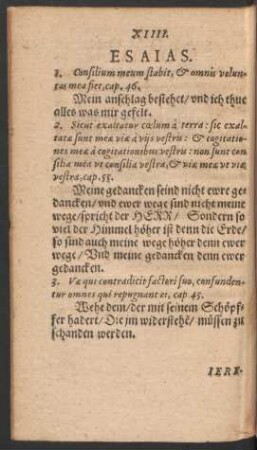 XIIII.
ESAIAS.
1. Consilium meum stabit, & omnis volun-
tas mea fiet, cap. 46.
Mein anschlag bestehet/ vnd ich thue
alles was mir gefelt.
2. Sicut exaltatur cœlum à terra: sic exal-
tatæ sunt meæ viæ à vijs vestris: & cogitatio-
nes meæ à cogitationibus vestris: non sunt con-
silia mea vt consilia vestra, & viæ meæ vt viæ
vestræ, cap. 55.
Meine gedancken seind nicht ewre ge-
dancken/ vnd ewer wege sind nicht meine
wege/ spricht der HERR/ Sondern so
viel der Himmel höher ist denn die Erde/
so sind auch meine wege höher denn ewer
wege/ Vnd meine gedancken denn ewer
gedancken.
3. Væ qui contradicit factori suo, confunden-
tur omnes qui repugnant ei, cap 45.
Wehe dem/ der mit seinem Schöpf-
fer hadert/ Die jm widerstehē/ müssen zu
schanden werden.
IERE-